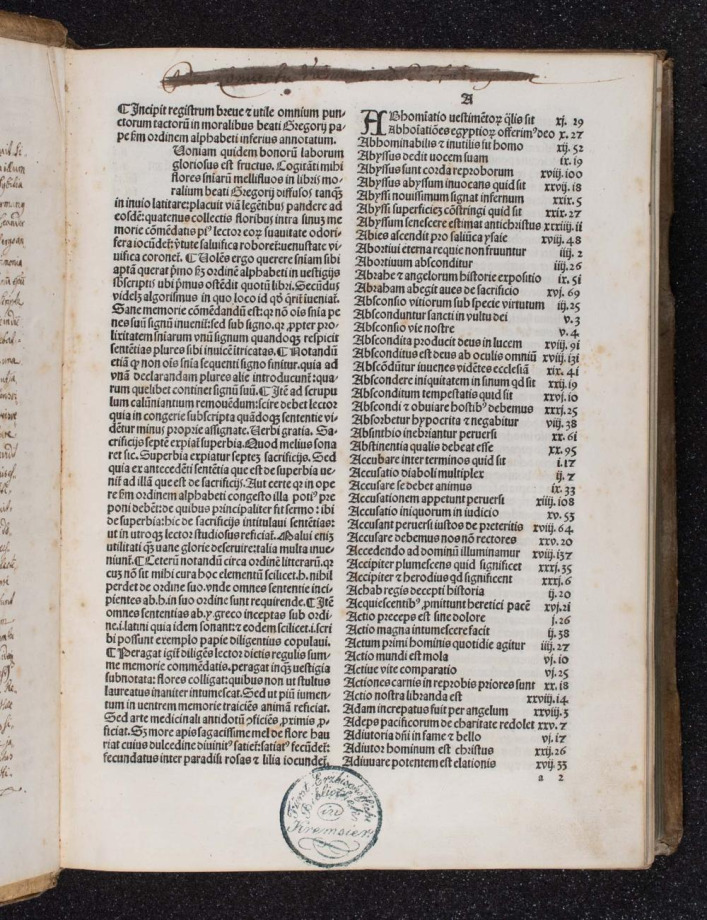 A
¶ Incipit registrum breue & utile omnium pun-
ctorum tactorũ in moralibus beati Gregorij pa-
pe ẜm ordinem alphabeti inferius annotatum.
Uoniam quidem bonorũ laborum
gloriosus est fructus. Cogitãti mihi
flores sniarũ mellifluos in libris mo-
ralium beati Gregorij diffusos tanq̃
in inuio latitare: placuit viã legẽtibus pandere ad
eosdẽ: quatenus collectis floribus intra sinuȝ me
morie cõmẽdatis pi⁹ lector eoꝝ suauitate odori-
fera iocũdet: v̓tute saluifica roboret: uenustate vi-
uifica coronet. ¶ Uolẽs ergo querere sniam sibi
aptã querat p̓mo ẜȝ ordinẽ alphabeti in uestigijs
sb̓scriptis ubi p̓mus ostẽdit quotũ libri. Secũdus
videlȝ algorismus in quo loco id qđ q̃rit iueniat̃.
Sane memorie cõmẽdandũ est: ꝙ nõ oĩs snia pe
nes suũ signũ inuenit̃: sed sub signo. qꝛ ꝓpter pro-
lixitatem sniarum vnũ signum quandoqȝ respicit
sentẽtias plures sibi inuicẽ itricatas. ¶ Notandũ
etiã ꝙ non oĩs snia sequenti signo finitur. quia ad
vnã declarandam plures alie introducunt̃: qua-
rum quelibet continet signũ suũ. ¶ Itẽ ad scrupu
lum calũniantium remouẽdum: scire debet lector
quia in congerie subscripta quãdoqȝ sententie vi-
dẽtur minus proprie assignate. Uerbi gratia. Sa-
crificijs septẽ expiat̃ superbia. Quod melius sona
ret sic. Superbia expiatur septeȝ sacrificijs. Sed
quia ex antecedẽti sẽtẽtia que est de superbia ue-
nit̃ ad illã que est de sacrificijs. Aut certe qꝛ in ope
re ẜm ordinem alphabeti congesto illa poti⁹ pre
poni debẽt: de quibus principaliter fit sermo: ibi
de superbia: hic de sacrificijs intitulaui sentẽtias:
ut in utroqȝ lector studiosus reficiat̃. Malui eniȝ
utilitati q̃ȝ uane glorie deseruire: talia multa inue-
niunt̃. ¶ Ceterũ notandũ circa ordinẽ litterarũ. qꝛ
cuȝ nõ sit mihi cura hoc elementũ scilicet. h. nihil
perdet de ordine suo. vnde omnes sententie inci-
pientes ab. h. in suo ordine sunt requirende. ¶ Itẽ
omnes sententias ab. y. greco inceptas sub ordi-
ne. i. latini quia idem sonant: eodem scilicet. i. scri
bi possunt exemplo papie diligentius copulaui.
¶ Peragat igit̃ diligẽs lector dietis regulis sum-
me memorie commẽdatis. peragat inqȝ uestigia
subnotata: flores colligat: quibus non ut stultus
laureatus inaniter intumescat. Sed ut piũ iumen-
tum in uentrem memorie traiciẽs animã reficiat.
Sed arte medicinali antidotũ ꝯficiẽs ꝓximis ꝓ-
ficiat. Sȝ more apis sagacissime mel de flore hau
riat cuius dulcedine diuinit⁹ satiet̃: satiat⁹ fecũdet̃:
fecundatus inter paradisi rosas & lilia iocundet̃.
ABhomĩatio uestimẽtoꝝ q̃lis sit xj. 29
Abhoĩatiões egyptioꝝ offerim⁹ deo x. 27
Abhominabilis & inutilis sit homo xij. 52
Abyssus dedit uocem suam ix. 19
Abyssus sunt corda reproborum xviij. 100
Abyssus abyssum inuocans quid sit xxvij. 18
Abyssi nouissimum signat infernum xxix. 5
Abyssi superficieȝ cõstringi quid sit xxix. 27
Abyssum senescere estimat antichristus xxxiiij. ii
Abies ascendit pro saliũca ysaie xviij. 48
Abortiui eterna requie non fruuntur iiij. 2
Abortiuum absconditur iiij. 26
Abrahe & angelorum historie expositio ix. 51
Abraham abegit aues de sacrificio xvj. 69
Absconsio vitiorum sub specie virtutum iij. 25
Absconduntur sancti in vultu dei v. 3
Absconsio vie nostre v. 4
Abscondita producit deus in lucem xviij. 91
Absconditus est deus ab oculis omniũ xviij. 131
Abscõdũtur iuuenes vidẽtes ecclesiã xix. 41
Abscondere iniquitatem in sinum qd sit xxij. 19
Absconditum tempestatis quid sit xxvj. 10
Abscondi & obuiare hostib⁹ debemus xxxj. 25
Absorbetur hypocrita & negabitur viij. 38
Absinthio inebriantur peruersi xx. 61
Abstinentia qualis debeat esse xx. 95
Accubare inter terminos quid sit i. 17
Accusatio diaboli multiplex ij. 7
Accusare se debet animus ix. 33
Accusationem appetunt peruersi xiiij. 108
Accusatio iniquorum in iudicio xv. 53
Accusant peruersi iustos de preteritis xviij. 64
Accusare debemus nos nõ rectores xxv. 20
Accedendo ad dominũ illuminamur xviij. 137
Accipiter plumescens quid significet xxxj. 35
Accipiter & herodius qd significent xxxj. 6
Achab regis decepti historia ij. 20
Acquiescentib⁹ ꝓmittunt heretici pacẽ xvj. 21
Actio preceps est sine dolore j. 26
Actio magna intumescere facit ij. 38
Actum primi hominis quotidie agitur iiij. 27
Actio mundi est mola vj. 10
Actiue vite comparatio vj. 25
Actiones carnis in reprobis priores sunt xx. 18
Actio nostra libranda est xxviij. 14
Adam increpatus fuit per angelum xxviij. 3
Adeps pacificorum de charitate redolet xxv. 7
Adiutoria dñi in fame & bello vj. 17
Adiutor hominum est christus xxij. 26
Adiuuare potentem est elationis xvij. 33
a 2
Fürst-Erzbischöfliche
Bibliothek
in
Kremsier